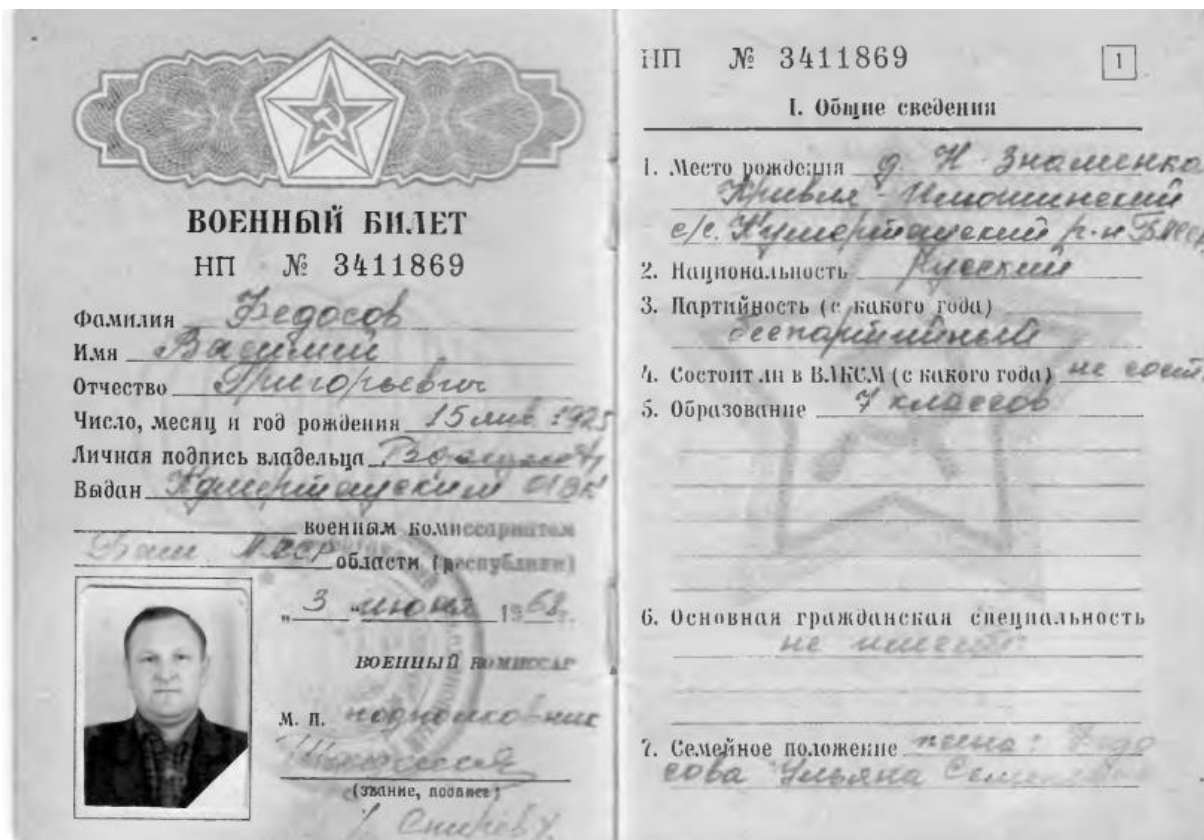 ВОЕННЫЙ БИЛЕТ
НП № 3411869
Фамилия Федосов
Имя Василий
Отчество Григорьевич
Число, месяц и год рождения 15 янв 1925
Личная подпись владельца
Выдан Кумертауским ОВК
военным комиссариатом
Баш АССР области (республики)
„3 " июня 1968г.
ВОЕННЫЙ КОМИССАР
М. П. подполковник
(звание, подпись)
НП № 3411869
1
I. Общие сведения
1. Место рождения д. Н Знаменка
Кривле - Илюшинский
с/с. Кумертауский р-н БАССР
2. Национальность Русский
3. Партийность (с какого года)
беспартийный
4. Состоит ли в ВЛКСМ (с какого года) не сост.
5. Образование 7 классов
6. Основная гражданская специальность
не имеет
7. Семейное положение жена: Федо
сова Ульяна